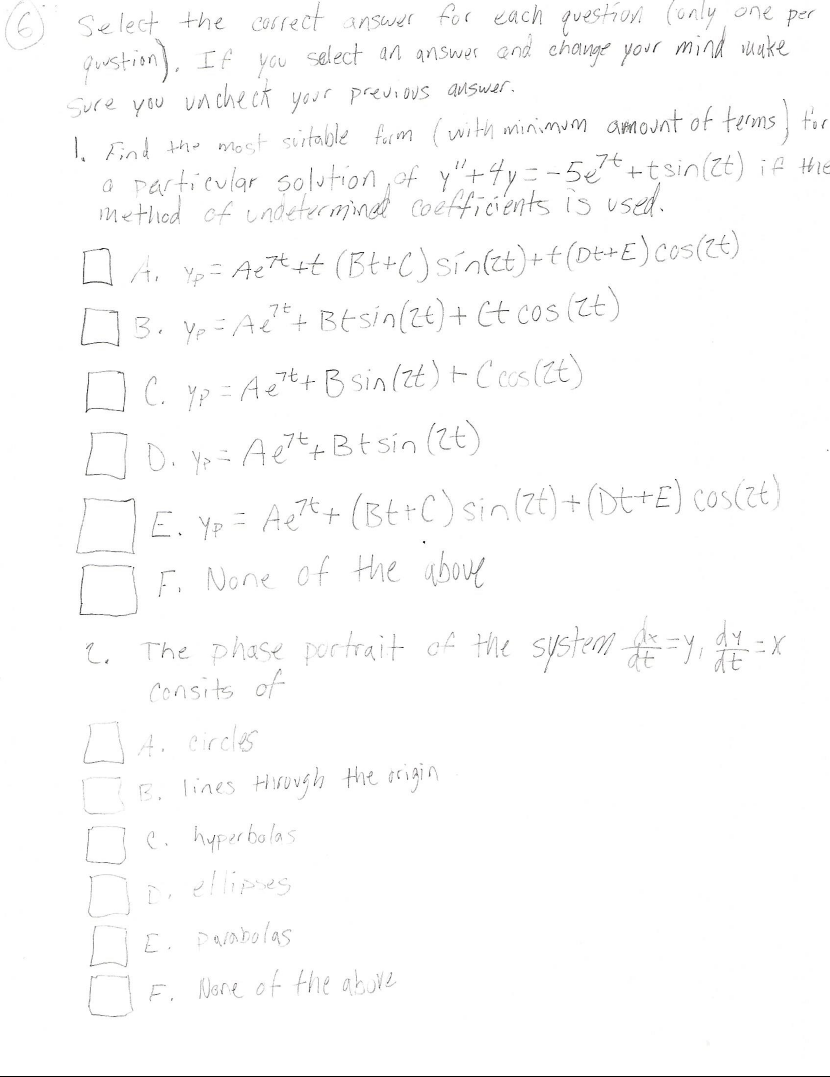 6 Select the correct answer for each question (only one per
qustion). If you select an answer and change your mind make
sure you uncheck your previous answer.
1. Find the most suitable form (with minimum amount of terms) for
a particular solution of y"+4y=-5e^7t+tsin(2t) if the
method of undetermined coefficients is used.
A. yp=Ae^7t+t(Bt+C)sin(2t)+t(Dt+E)cos(2t)
B. yp=Ae^7t+Btsin(2t)+Ct cos(2t)
C. yp=Ae^7t+Bsin(2t)+Ccos(2t)
D. yp=Ae^7t+Btsin(2t)
E. yp=Ae^7t+(Bt+C)sin(2t)+(Dt+E)cos(2t)
F. None of the above
2. The phase portrait of the system dx/dt=y, dy/dt=x
consits of
A. circles
B. lines through the origin
C. hyperbolas
D. ellipses
E. parabolas
F. None of the above